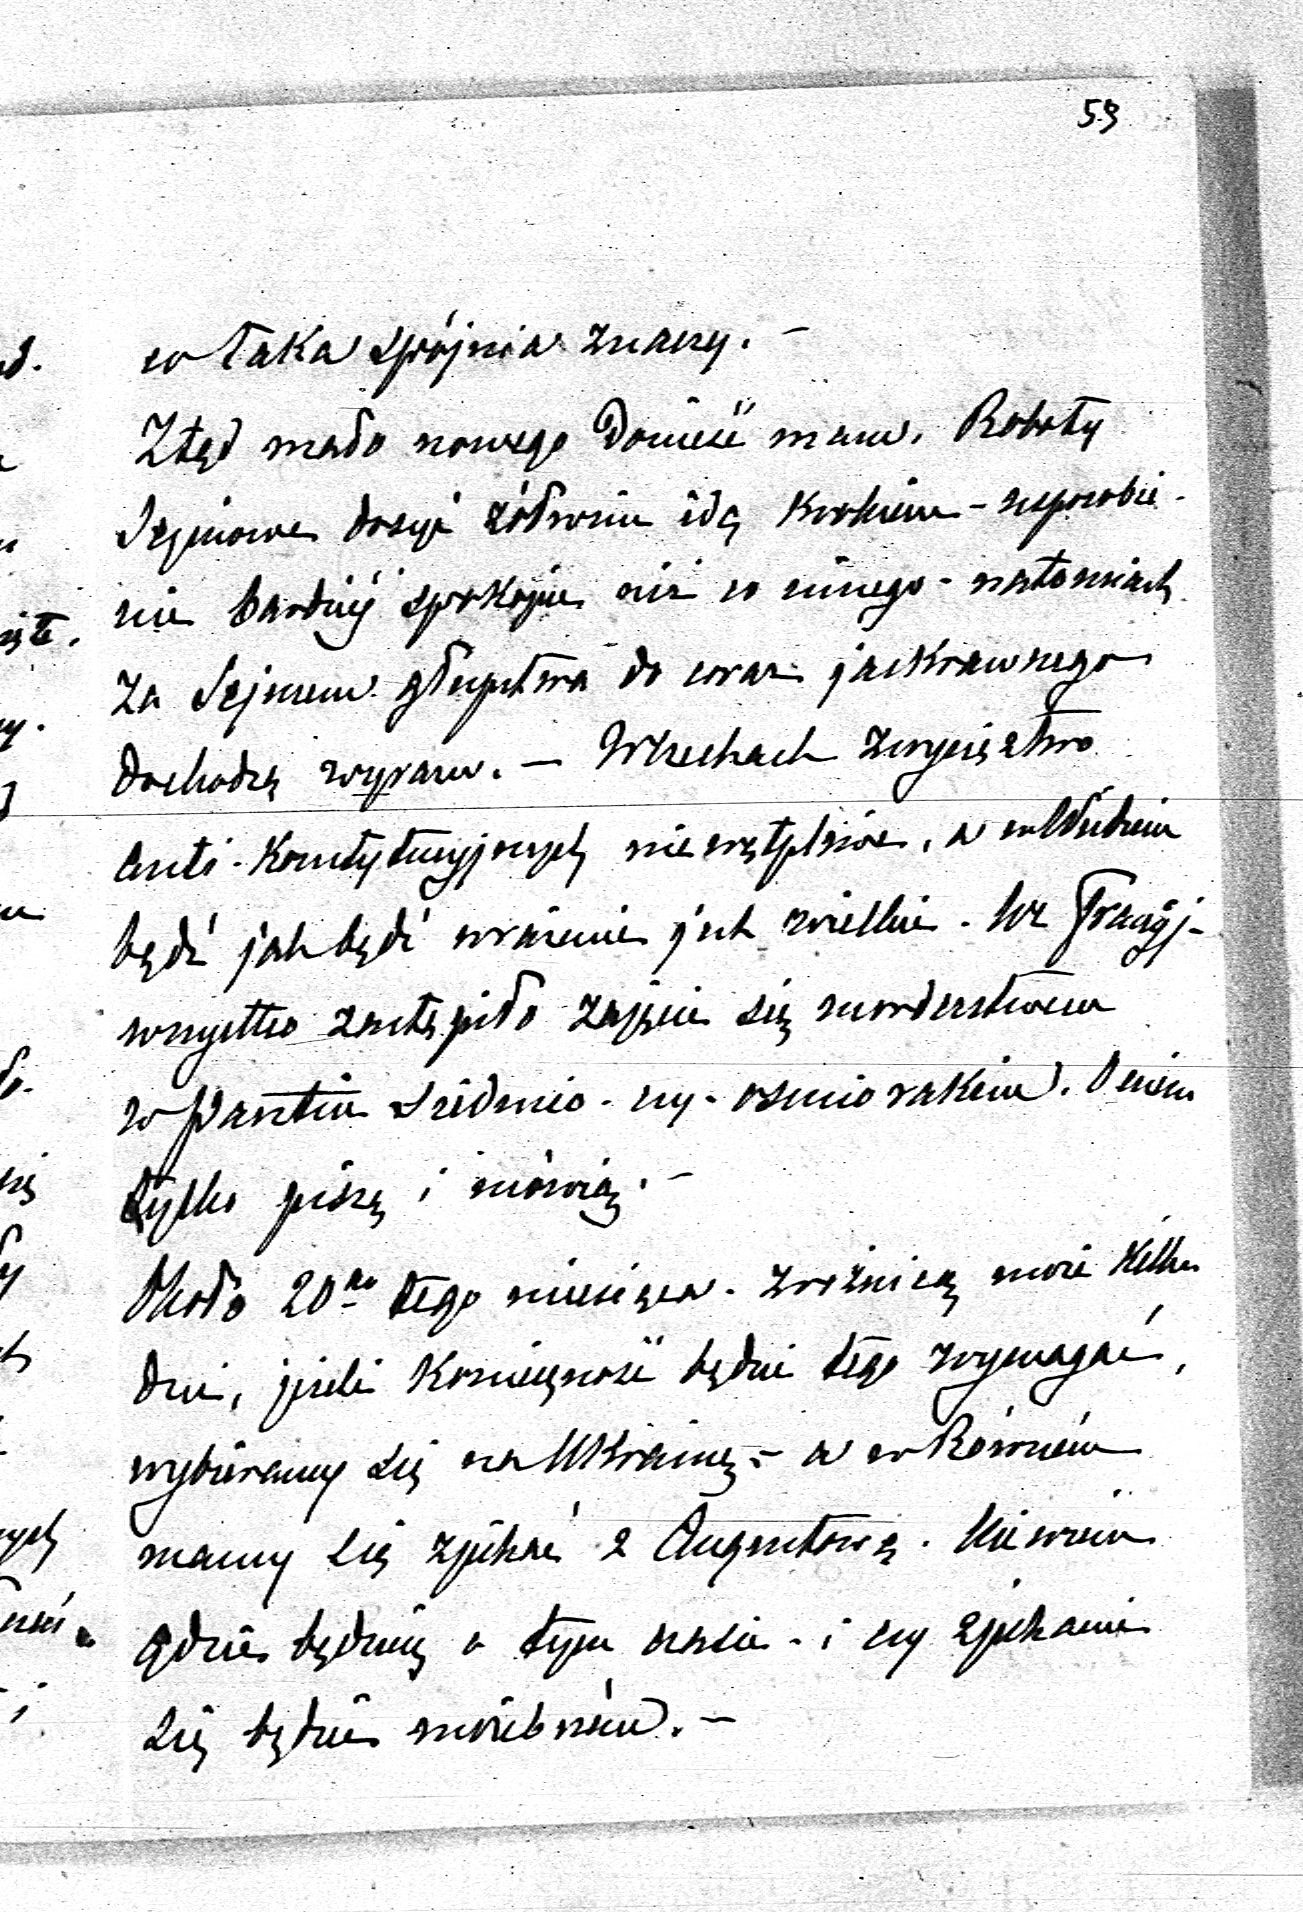 59
co taka spójnia znaczy. —
Ztąd mało nowego donieść mam. Roboty
Sejmowe dosyć żółwim idą krokiem - usposobie-
nie bardziéj spokojne niż co innego - natomiast
za Sejmem głupstwa do coraz jaskrawszego
dochodzą wyrazu. — W Czechach zwycięstwo
anti-konstytucyjnych niewątpliwe, a w Wiedniu
bądź jak bądź wrażenie jest wielkie. We Francyj-
wszystko zastąpiło zajęcie się morderstwem
w Pantin siedmio- czy- ośmiorakiem. O niém
tylko piszą i mówią. —
Około 20go tego miesiąca - z różnicą może kilku
dni, jeżeli konieczność będzie tego wymagać,
wybieramy się na Ukrainę - a w Równém
mamy się zjechać z Augustową. Nie wiem
gdzie będziesz o tym czasie - i czy zjechanie
się będzie możebném. —